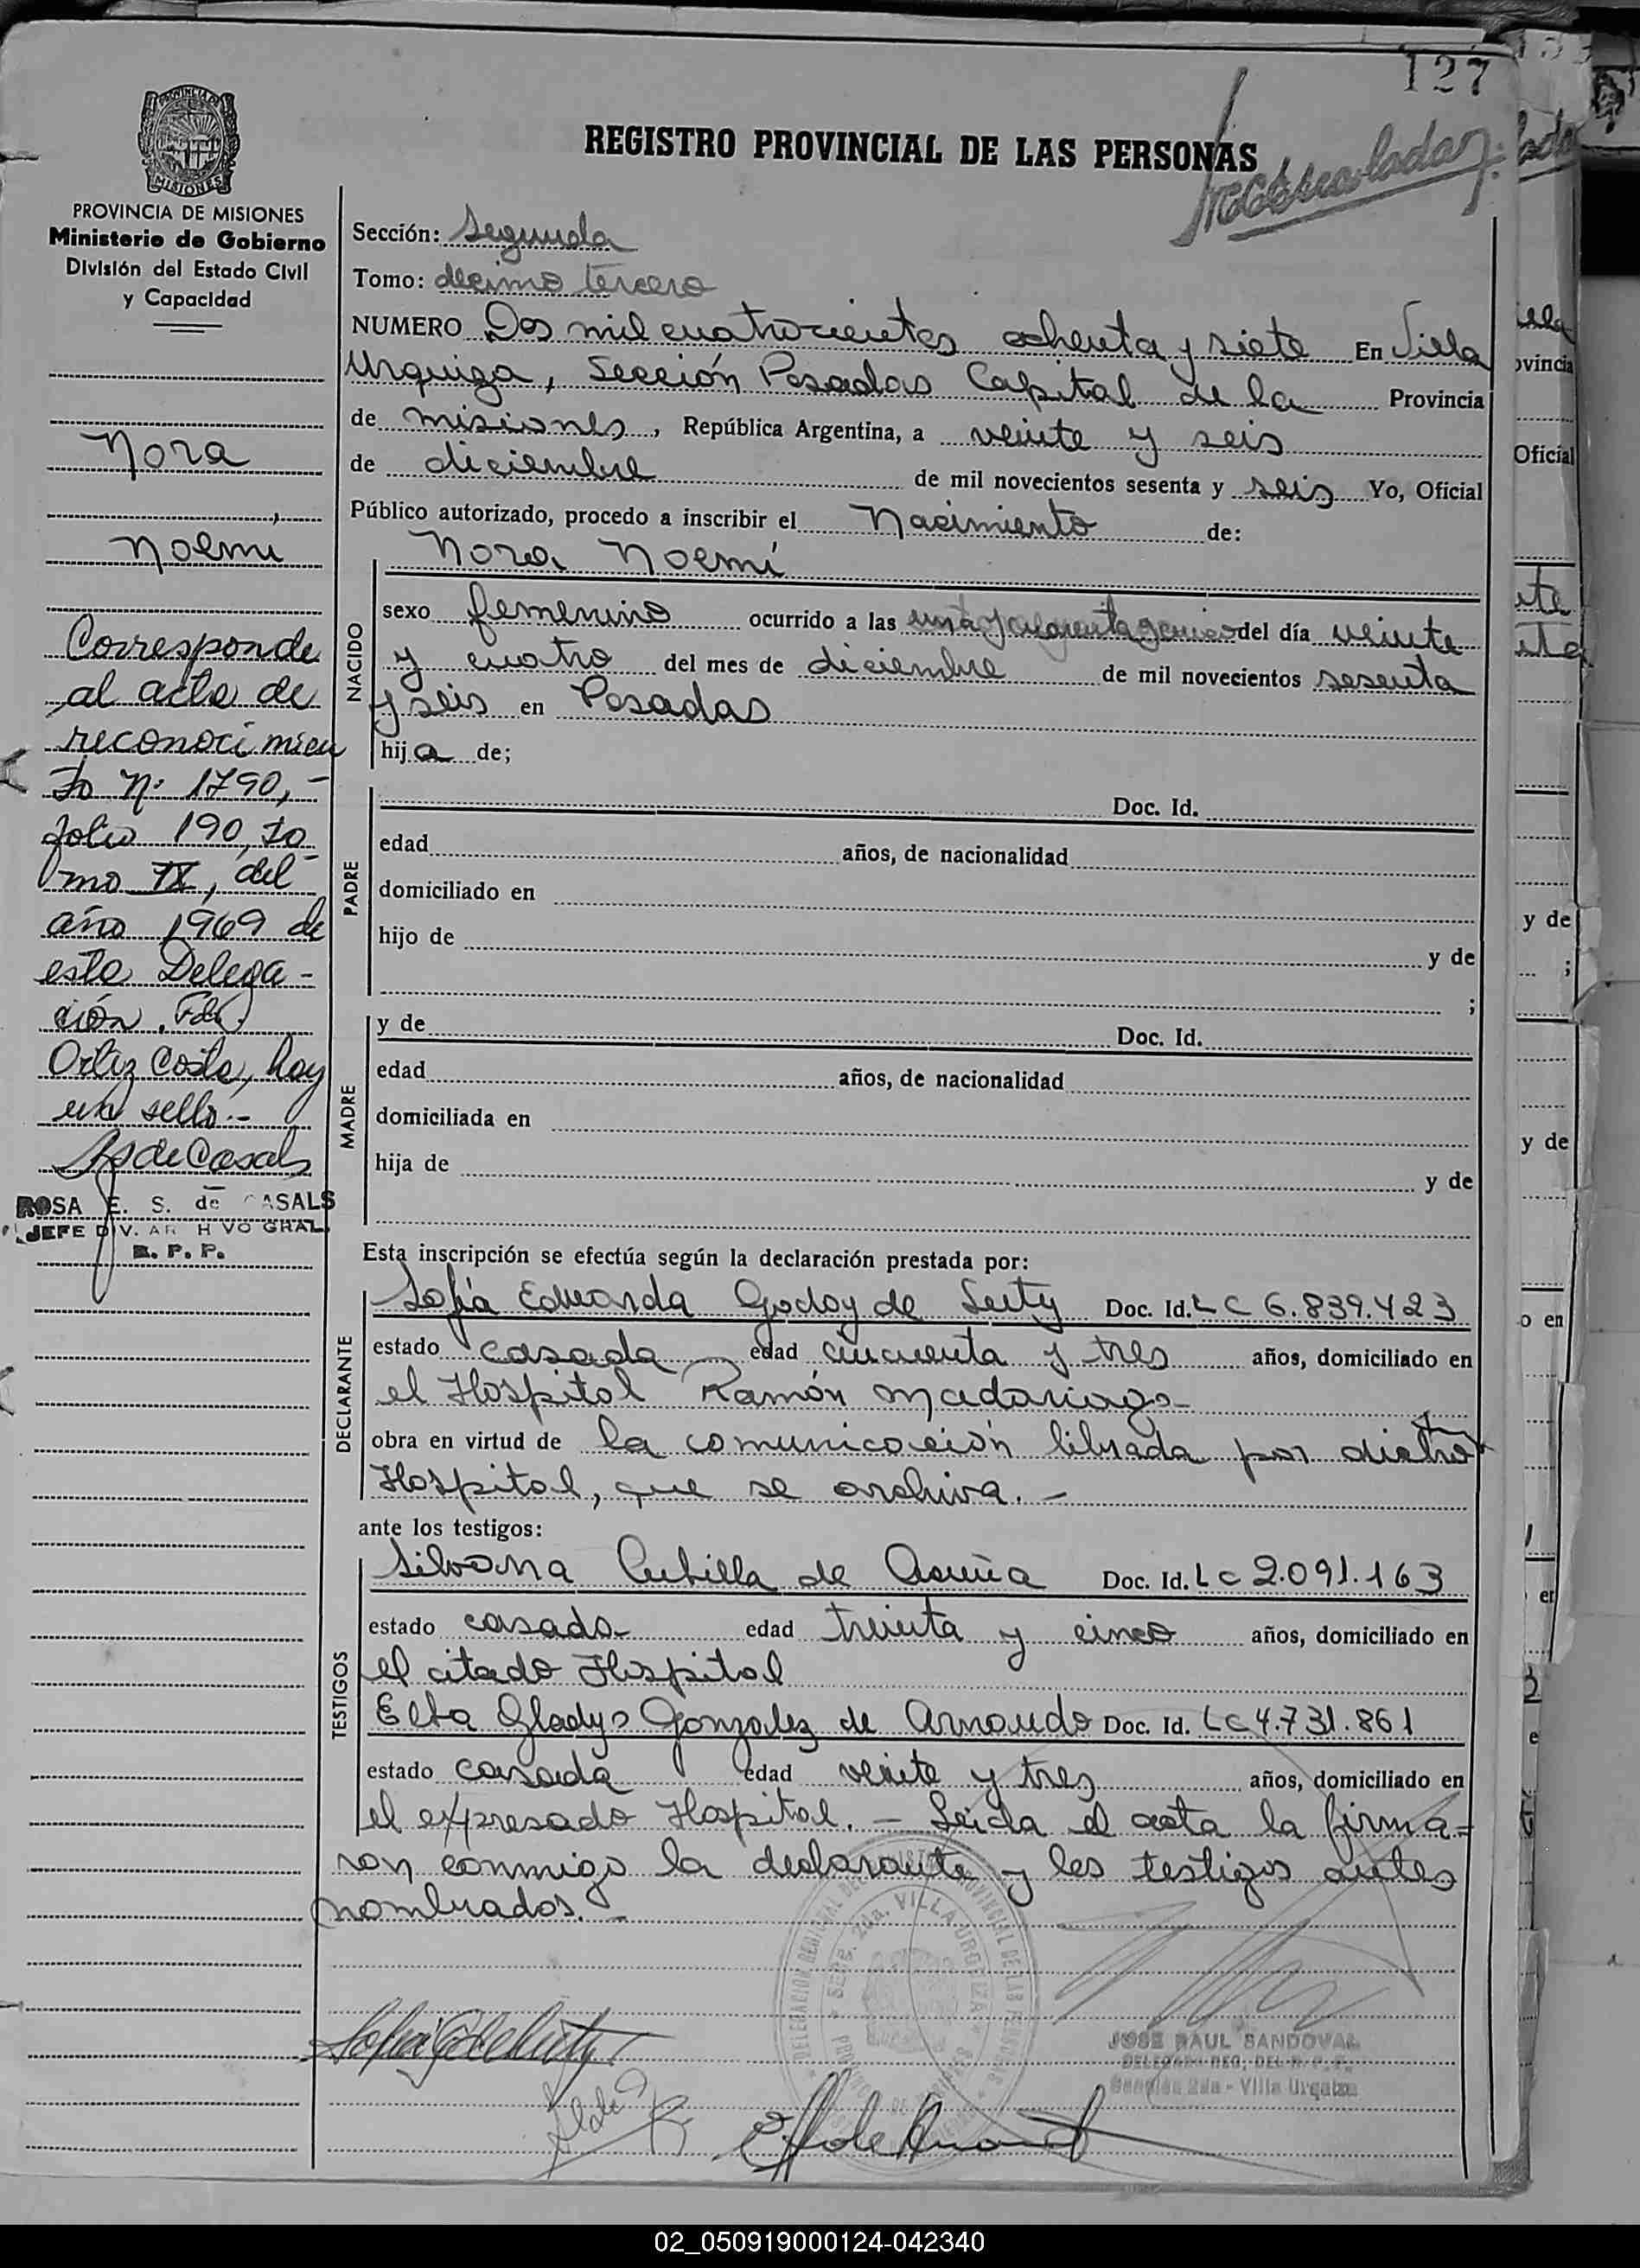 127
REGISTRO PROVINCIAL DE LAS PERSONAS
PROVINCIA DE MISIONES
MISIONES
PROVINCIA DE MISIONES
Ministerio de Gobierno
División del Estado Civil
y Capacidad
Nora
Noemi
Corresponde
al acta de
reconocimien
to Nº 1790,-
folio 190, to
mo IX, del
año 1969 de
esta Delega-
ción. Fdo.
Ortiz Costa, hay
un sello.-
S de Casals
ROSA E. S. de CASALS
JEFE DIV. ARCHIVO GRAL.
R. P. P.
Sección: Segunda
Tomo: decimo tercero
NUMERO Dos mil cuatrocientos ochenta y siete En Villa
Urquiza, Sección Posadas Capital de la Provincia
de misiones, República Argentina, a veinte y seis
de diciembre de mil novecientos sesenta y seis Yo, Oficial
Público autorizado, procedo a inscribir el Nacimiento de:
Nora Noemí
NACIDO
sexo femenino ocurrido a las una y cuarenta y cinco del día veinte
y cuatro del mes de diciembre de mil novecientos sesenta
y seis en Posadas
hija de;
PADRE
Doc. Id.
edad años, de nacionalidad
domiciliado en
hijo de y de
;
MADRE
y de Doc. Id.
edad años, de nacionalidad
domiciliada en
hija de y de
Esta inscripción se efectúa según la declaración prestada por:
DECLARANTE
Sofía Eduarda Godoy de Doc. Id. LC 6.839.423
estado casada edad cincuenta y tres años, domiciliado en
el Hospital Ramón Madariaga
obra en virtud de la comunicación librada por dicho
Hospital, que se archiva.-
ante los testigos:
TESTIGOS
Silvana Cubilla de Acuña Doc. Id. LC 2.091.163
estado casada edad treinta y cinco años, domiciliado en
el citado Hospital
Elba Gladys Gonzalez de Arnaudo Doc. Id. LC 4.731.861
estado casada edad veinte y tres años, domiciliado en
el expresado Hospital.- Leida el acta la firma=
ron conmigo la declarante y los testigos antes
nombrados.-
SECC. 2da. VILLA URQUIZA
JOSE RAUL SANDOVAL
DELEGADO REG. DEL R. P. P.
Sección 2da - Villa Urquiza
02_050919000124-042340